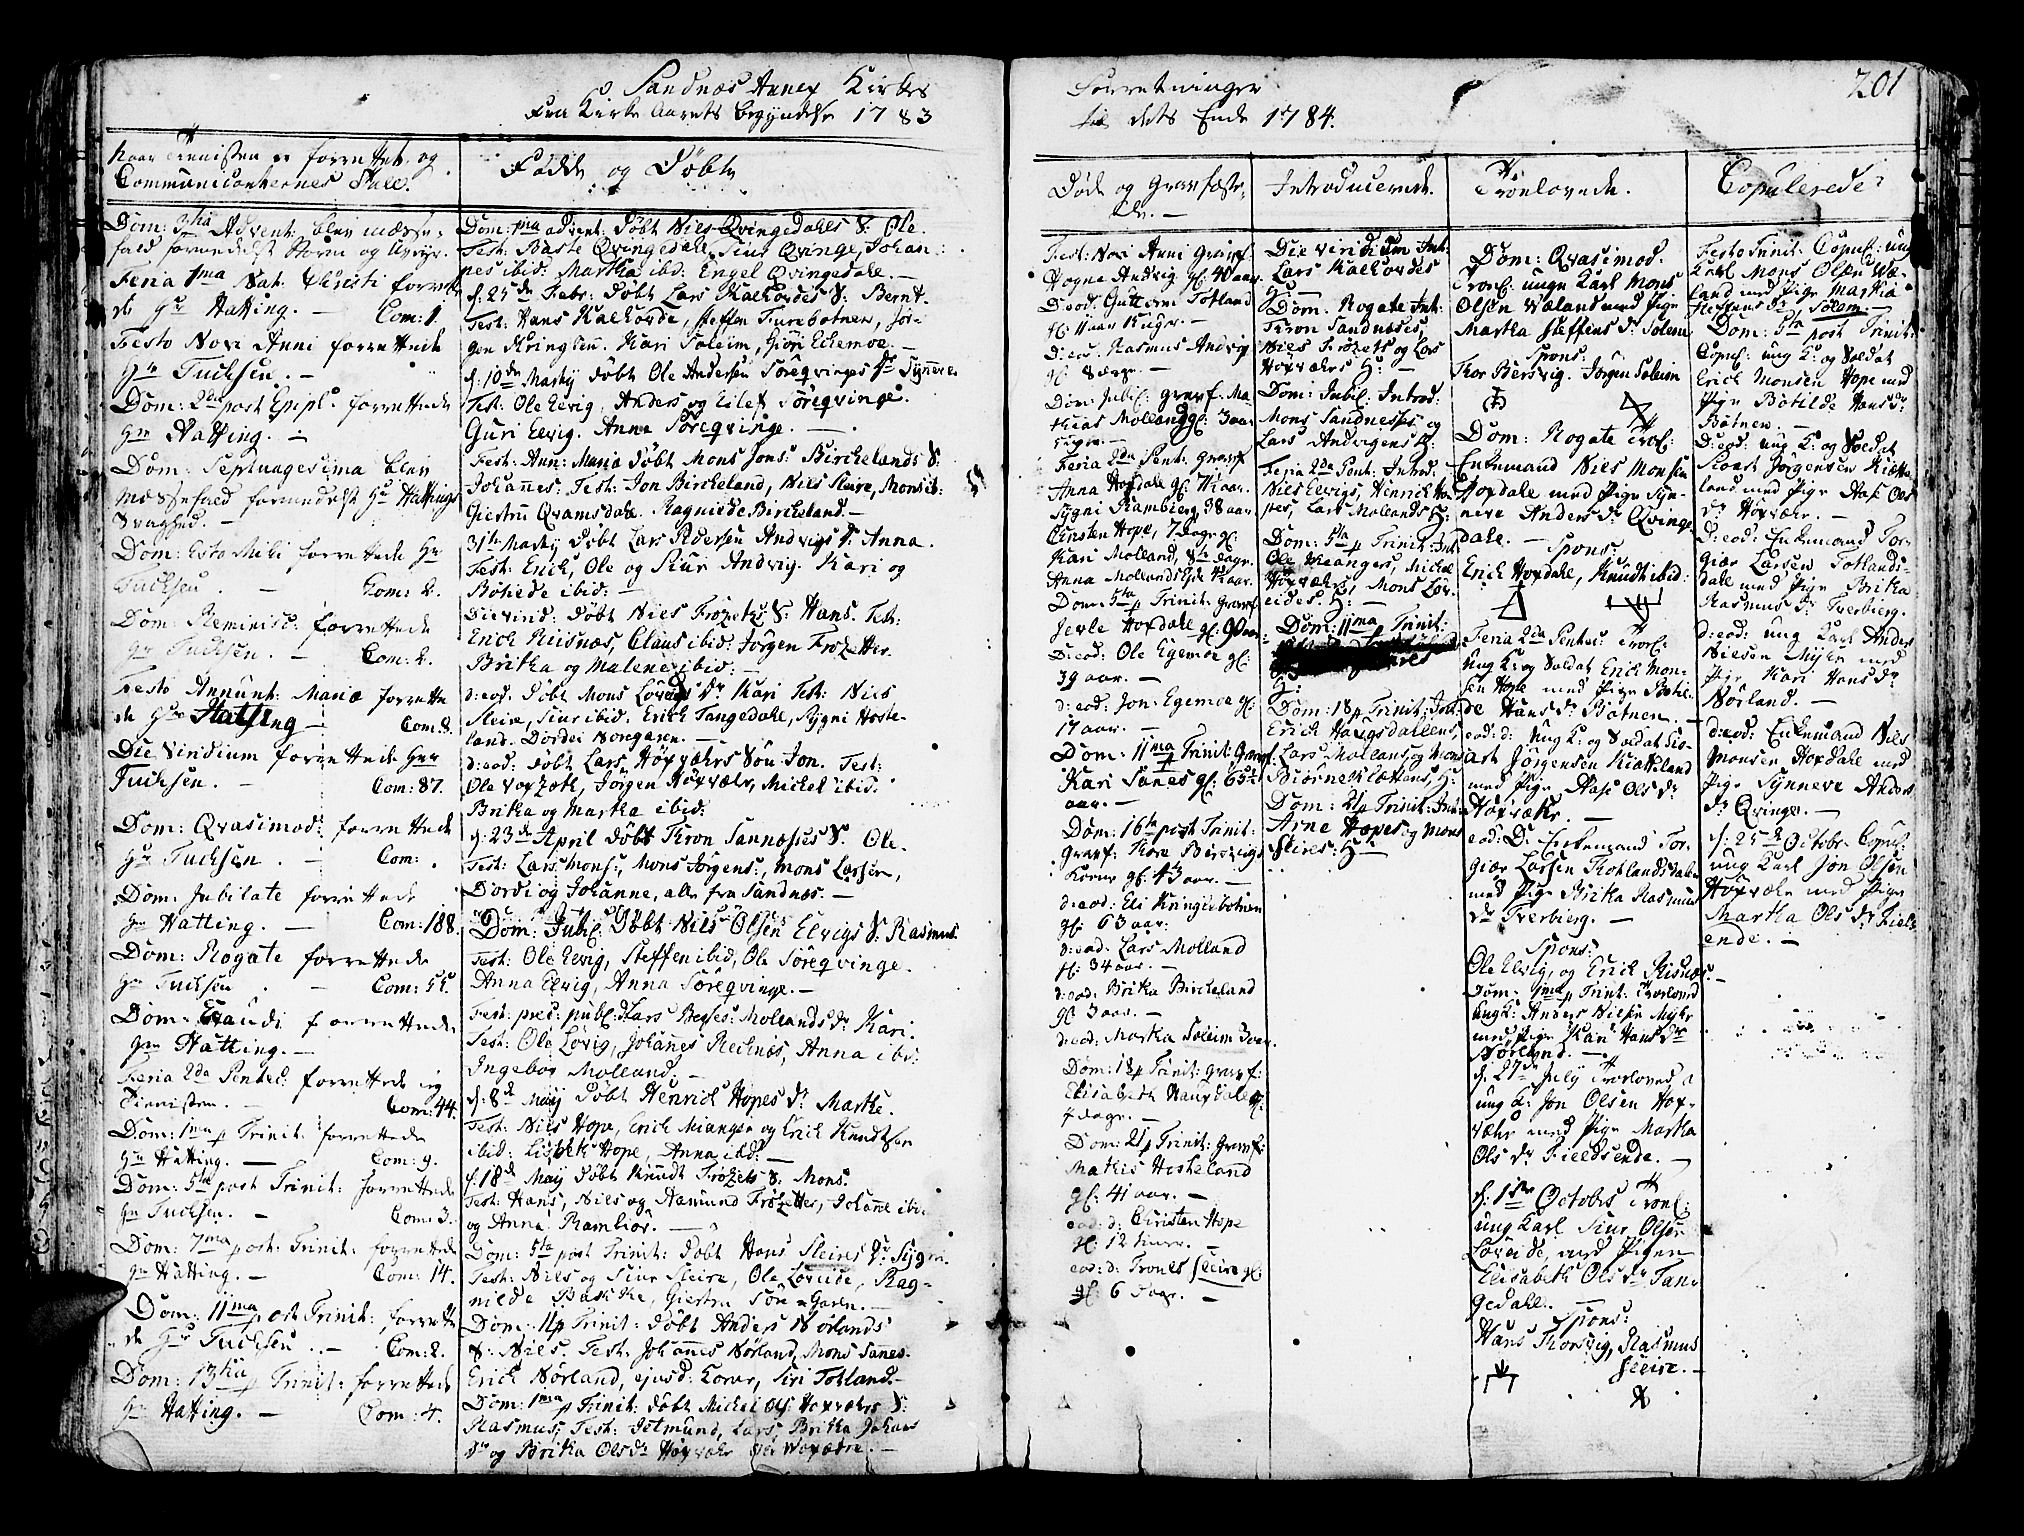 Sandnæs Annex Kirkes
Fra Kirke Aarets begyndelse 1783
Naar Tienisten er forrettet og
Communicanternes Tall.
Fødde og Døbte
Dom: 3tia Advent. blev messe-
fald formedelst Storm og
Feria 1ma Nat. Christi forrette
de Hr Hatting. — Com: 1.
Festo Novi Anni forrettede
Hr Tuchsen. —
Dom: 2da post Epiph. forrettede
Hr Hatting. —
Dom: Septuagesima blev
Messefald formedelst Hr Hattings
Svaghed. —
Dom: Esto Mihi forrettede Hr
Tuchsen. — Com: 2.
Dom: Reminisc: forrettede
Hr Tuchsen. — Com: 2.
Festo Annunt: Mariæ forrette
de Hr Hatting — Com: 8.
Die Viridium forrettede Hr
Tuchsen. — Com: 87.
Dom: Qvasimod: forrettede
Hr Tuchsen. — Com: .
Dom: Jubilate forrettede
Hr Hatting. — Com: 188.
Dom: Rogate forrettede
Hr Tuchsen. — Com: 55.
Dom: Exaudi forrettede
Hr Hatting. —
Feria 2da Pentec: forrettede jeg
Tienisten. — Com: 44.
Dom: 1ma p Trinit: forrettede
Hr Hatting. — Com: 9.
Dom: 5ta post Trinit: forrettede
Hr Tuchsen. — Com: 3.
Dom: 7ma post: Trinit: forrettede
Hr Hatting. — Com: 14.
Dom: 11ma post Trinit: forrette
de Hr Tuchsen. — Com: 2.
Dom: 13tia p Trinit: forrettede
Hr Hatting. — Com: 4.
Dom: 1ma Advent: Døbt Niels Qvingedales S: Ole.
Test: Baste Qvingedale, Siur Qvinge, Johan-
nes ibid: Martha ibd: Engel Qvingedale. —
d: 25de Febr: Døbt Lars Kalhovdes S: Bernt.
Test: Hans Kalhovde, Steffen Furebotnen, Jør-
gen Kringlen. Kari Soleim, Giøri Echemoe. —
d: 10de Martij Døbt Ole Andersen Søreqvinges Dr Synneve
Test: Ole Elvig, Anders og Eilef Søreqvinge.
Guri Elvig. Anna Søreqvinge. —
Fest: Ann: Maria Døbt Mons Jons: Birchelands S:
Johannes: Test: Jon Bircheland, Niels Sleire, Mons ib:
Giestru Qvamsdale. Ragnilde Bircheland. —
31te Martij Døbt Lars Pedersen Andvigs Dr Anna.
Test: Erich, Ole og Siur Andvig. Kari og
Bothede ibid: —
Die Virid: Døbt Niels Frøzets S: Hans. Test:
Erich Risnæs, Claus ibid: Jørgen Frøzetter.
Britha og Malene ibid: —
d: eod: Døbt Mons Løveides Dr Kari Test: Niels
Sleire, Siur ibid. Erich Tangedale, Sygni Hoste-
land. Dordei Norgaren. —
d: eod: Døbt Lars Høyvæhrs Søn Jon. Test:
Ole Voxzeth, Jørgen Høyvæhr, Michel ibid.
Britha og Martha ibid:
d: 23de April Døbt Thron Sannæsses S. Ole.
Test: Lars Mons:, Mons Jørgens:, Mons Larsen,
Dordi og Johanne, alle fra Sandnæs. —
Dom: Jubil: Døbt Niels Olsen Elvigs S: Rasmus.
Test: Ole Elvig, Steffen ibid, Ole Søreqvinge.
Anna Elvig, Anna Søreqvinge. —
Fest: pred: publ: Lars Mollands Dr Kari.
Test: Ole Løvig, Johanes Rechnæs, Anna ibid:
Ingebor Molland. —
d: 8de May Døbt Henrich Hopes Dr Marthe.
Test: Niels Hope, Erich Mianger og Erich Knudtsen
ibid: Lisbeth Hope, Anna ibd: —
d: 18de May Døbt Knudt Frøzets S: Mons.
Test: Hans, Niels og Aamund Frøzetter, Johanne ibid:
og Anna Ramhior. —
Dom: 5ta post Trinit: Døbt Hans Sleires Dr Sygni.
Test: Niels og Siur Sleire, Ole Løveide, Rag-
nilde Giestru Søregaren. —
Dom: 11 p Trinit: Døbt Anders Nørlands
S: Niels. Test: Johannes Nørland, Mons Sanes.
Erich Nørland, ejusd: Kone, Siri Totland. —
Dom: 1ma p Trinit: Døbt Michel Ols: Høyvæhrs S:
Rasmus, Test: Jetmund, Lars, Britha Johans
Dr og Britha Ols Dr Høyvæhr
Forretninger
til dets Ende 1784.
201
Døde og Gravfæste-
de. —
Introducerede.
Trolovede.
Copulerede
Fest: Novi Anni Gravf.
Hogne Andvig gl: 40 aar.
D: eod: Guttorm Totland
gl: 11 aar
D: eod: Rasmus Andvig
gl: 8 dage. —
Dom: Jubil: gravf. Ma-
thias Molland gl: 3 aar
Feria 2da Pent: Gravf
Anna Hopdale gl: 7 aar.
Sygni Ramberg 38 aar
Christen Hope, 7 Dage gl:
Kari Molland, 8te dage.
Anna Mollands
Dom: 5ta p Trinit: Gravf:
Jerle Hopdale gl: 90 aar
D: eod: Ole Egemoe gl:
39 aar. —
d: eod: Jon Egemoe gl:
17 aar. —
Dom: 11ma p Trinit: Gravf:
Kari Sanes gl: 65½
aar. —
Dom: 16ta post Trinit:
Gravf: Thore Bersvigs
Kone gl: 43 aar. —
d: eod: Eli Kringlebotnen
gl: 63 aar:
d: eod: Lars Molland
gl: 34 aar. —
d: eod: Britha Bircheland
gl 3 aar. —
d: eod: Martha Soleim 3 aar.
Dom: 18 p Trinit: Gravf:
Elisabeth Haugsdale gl:
7 dage. —
Dom: 21 p Trinit: Gravf:
Mathis Hosteland
gl: 41 aar. —
eod: d: Christen Hope
gl: 12 timer. —
eod: d: Trones Sleire gl:
gl: 6 Dage. —
Die Viridium Int:
Lars Kalhovdes
H:
Dom: Rogate Int:
Thron Sandnæsses,
Niels Frøzets og Lars
Høyvæhrs H: —
Dom: Jubil: Introd:
Mons Sandnesses og
Lars Andvigens H:
Feria 2da Pent: Introd:
Niels Elvigs, Henrich Ho-
pes, Lars Mollands H:
Dom: 5ta p Trinit: Int:
Ole Meangers, Michel
Høyvæhrs, Mons Løv-
eides. H: —
Dom: 11ma p Trinit:
H:
Dom: 18 p Trinit: Int:
Erich Haugsdallens,
Lars Mollans, og Mons
Biørneklættens, H:
Dom: 21 p Trinit: Intro
Arne Hopes og Mons
Sleires: H —
Dom: Qvasimod.
Trol: unge Karl Mons
Olsen Valand med Pige
Martha Steffens Dr Solem
Spons:
Thor Bersvig. Jørgen Soleim
Dom: Rogate Trol:
Enkemand Niels Monsen
Hopdale med Pige Syn-
neve Anders Dr Qvinge
dale. — Spons:
Erich Hopdale, Knudt ibid:
Feria 2da Pentec: Trol:
ung K: og Soldat Erich Mon-
sen Hope med Pige Botil-
de Hans Dr Botnen. —
eod: d: Ung K: og Soldat Sio-
art Jørgensen Kietteland
med Pige Aase Ols Dr
Høyvæhr. —
eod: D: Enkemand Tor-
giær Larsen Thotlandsdalen
med Pige Britha Rasmus
Dr Tverberg. —
Spons:
Ole Elvig, og Erich Risnæs. —
Dom: 1ma p Trinit: Trolovet
Ung K: Anders Nilsen Myhr
med Pige Kari Hans Dr
Nørland. —
d. 27de July Trolovet
ung K: Jon Olsen Høy-
væhr med Pige Martha
Ols Dr Fieldsende. —
d: 1ste Octobr Trol:
ung Karl Siur Olsen
Løveide med Pigen
Elisabeth Ols Dr Tan-
gedahl. —
Spons:
Hans Thorsvig, Rasmus
Sleire. —
Festo Trinit: Copul: ung
Karl Mons Olsen Wa-
land med Pige Martha
Steffens Dr Solem. —
Dom: 5ta post Trinit:
Copul: ung K: og Soldat
Erich Monsen Hope med
Pige Botilde Hans Dr
Botnen. —
D: eod: ung K: og Soldat
Sioart Jørgensen Kiette-
land med Pige Aase Ols
Dr Høyvæhr. —
d: eod: Enkemand Tor-
giær Larsen Totlands-
dale med Pige Britha
Rasmus Dr Tverberg.
d: eod: ung Karl Anders
Nielsen Myhr med
Pige Kari Hans Dr
Nørland. —
d: eod: Enkemand Niels
Monsen Hopdale med
Pige Synneve Anders
Dr Qvinge. —
d: 25de October Copul:
ung Karl Jon Olsen
Høyvæhr med Pige
Martha Ols Dr Fiels-
ende. —